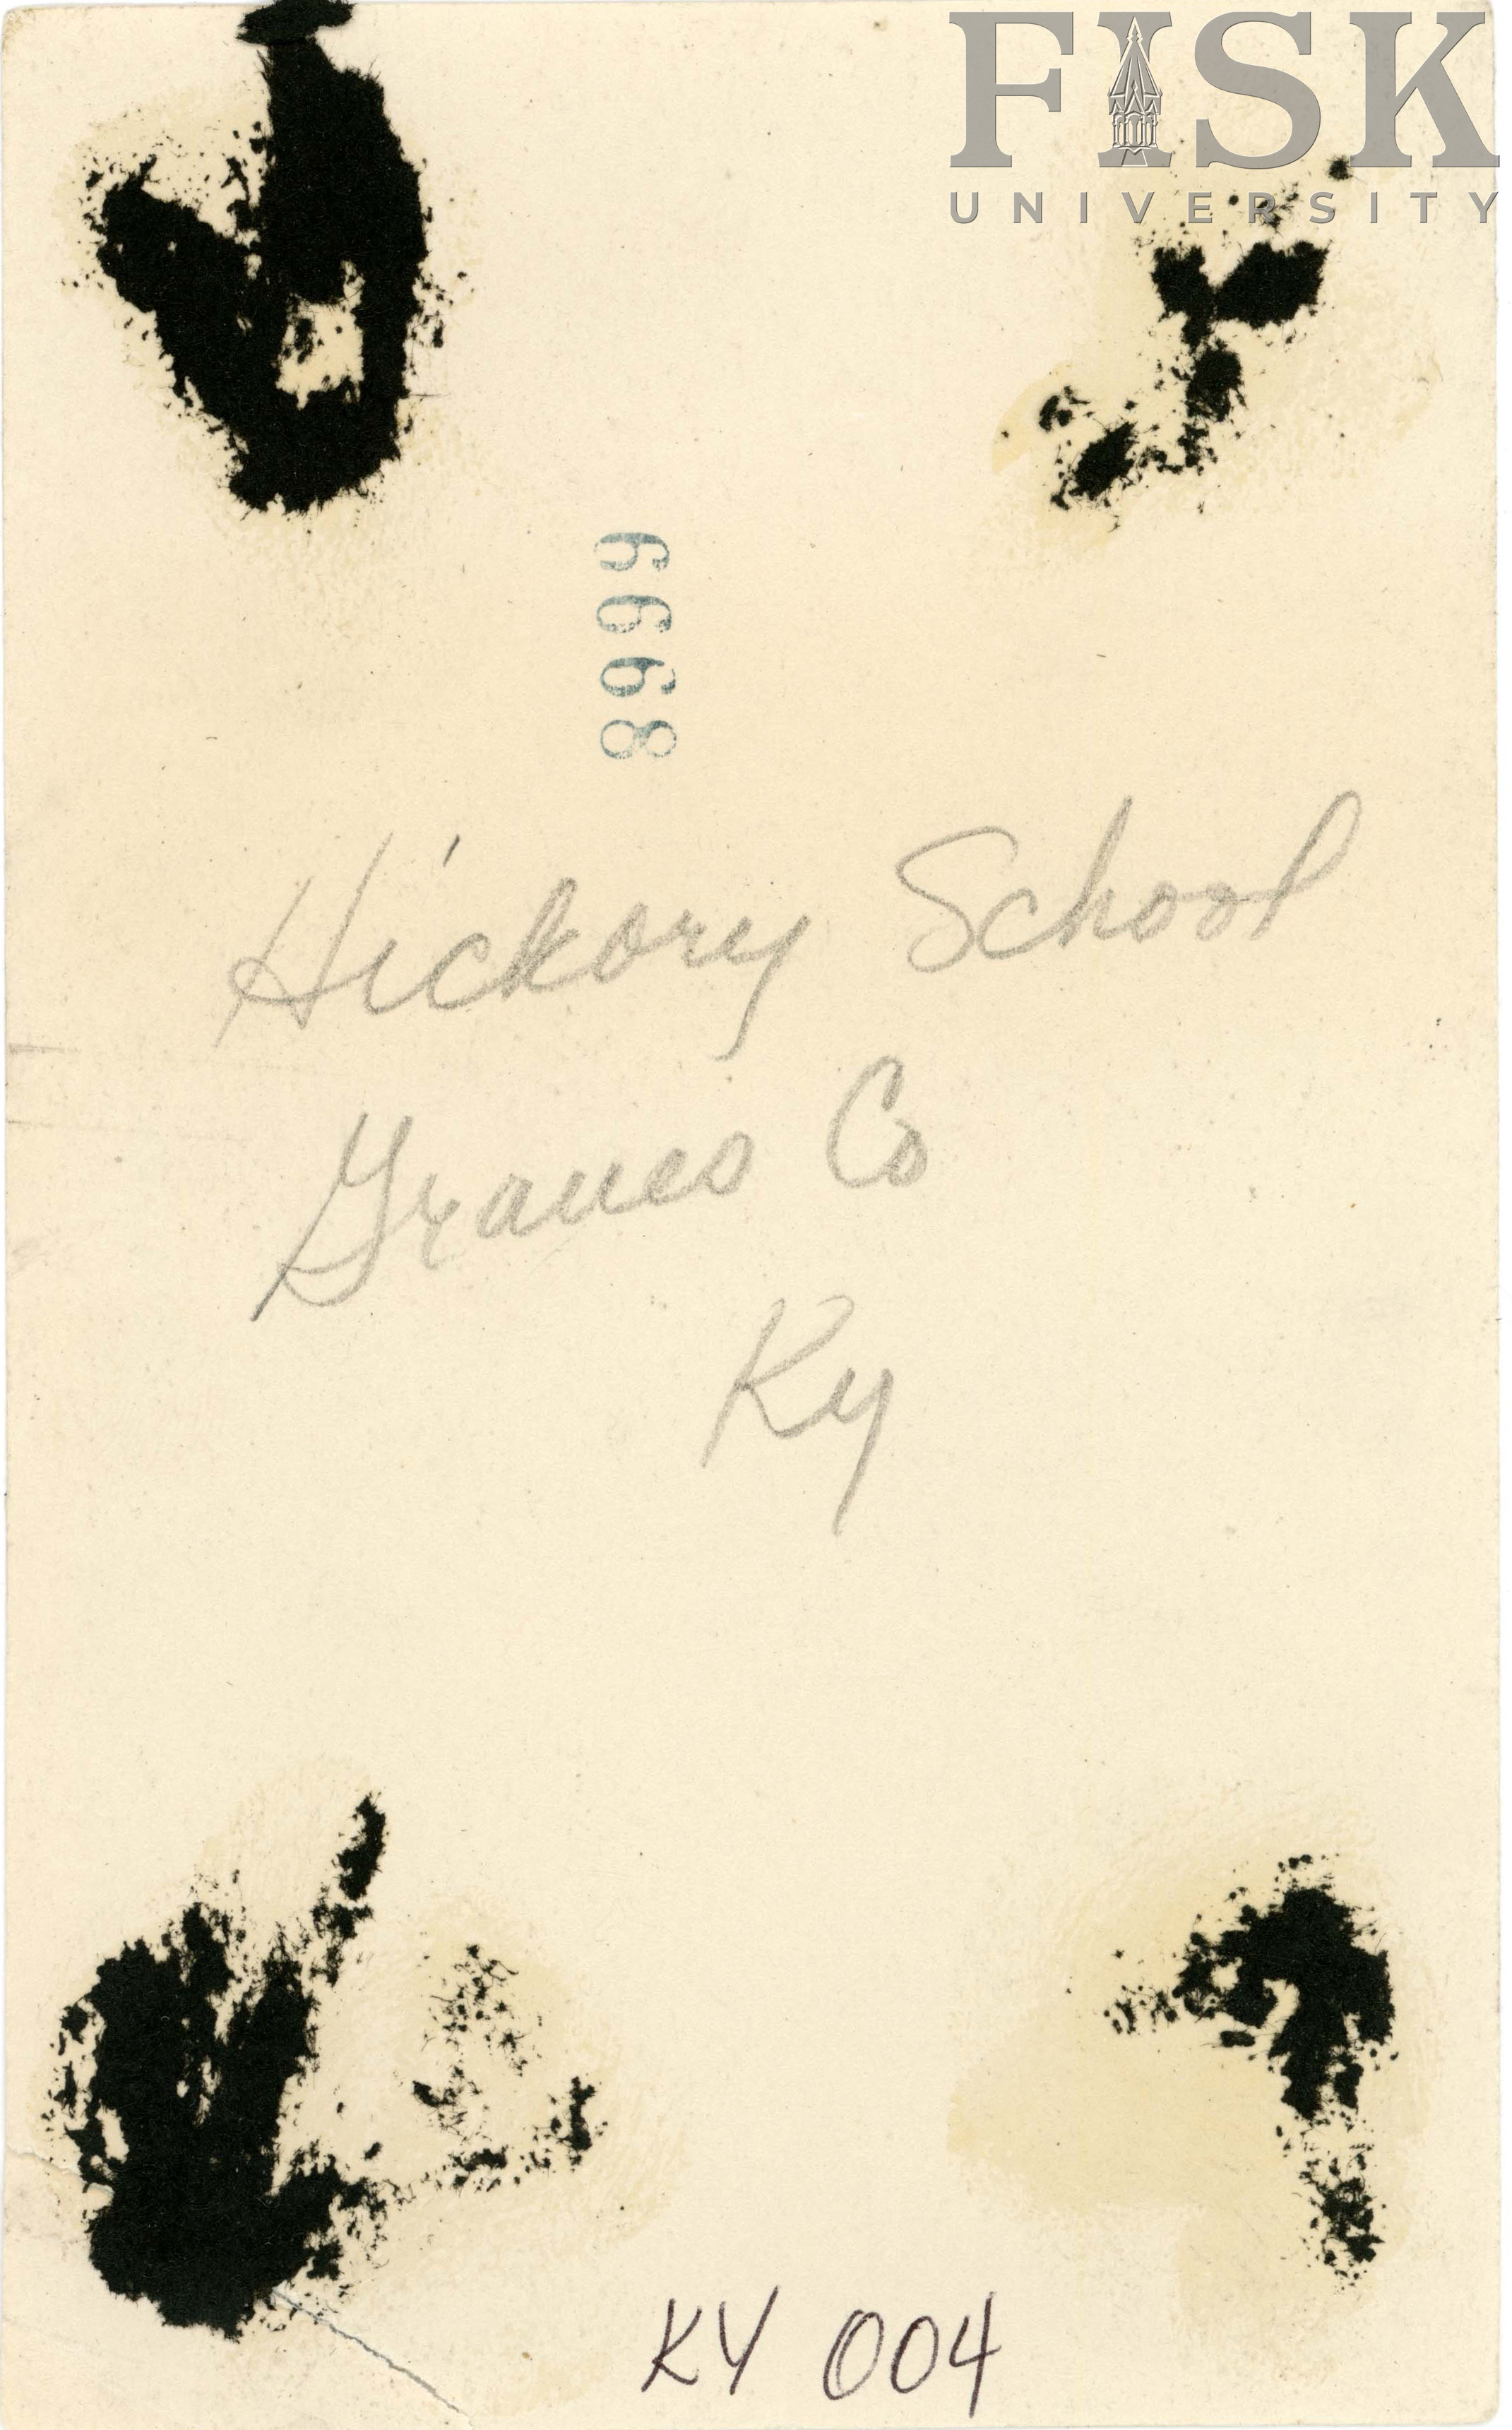 FISK
UNIVERSITY
Hickory School
Graves Co
Ky
KY 004